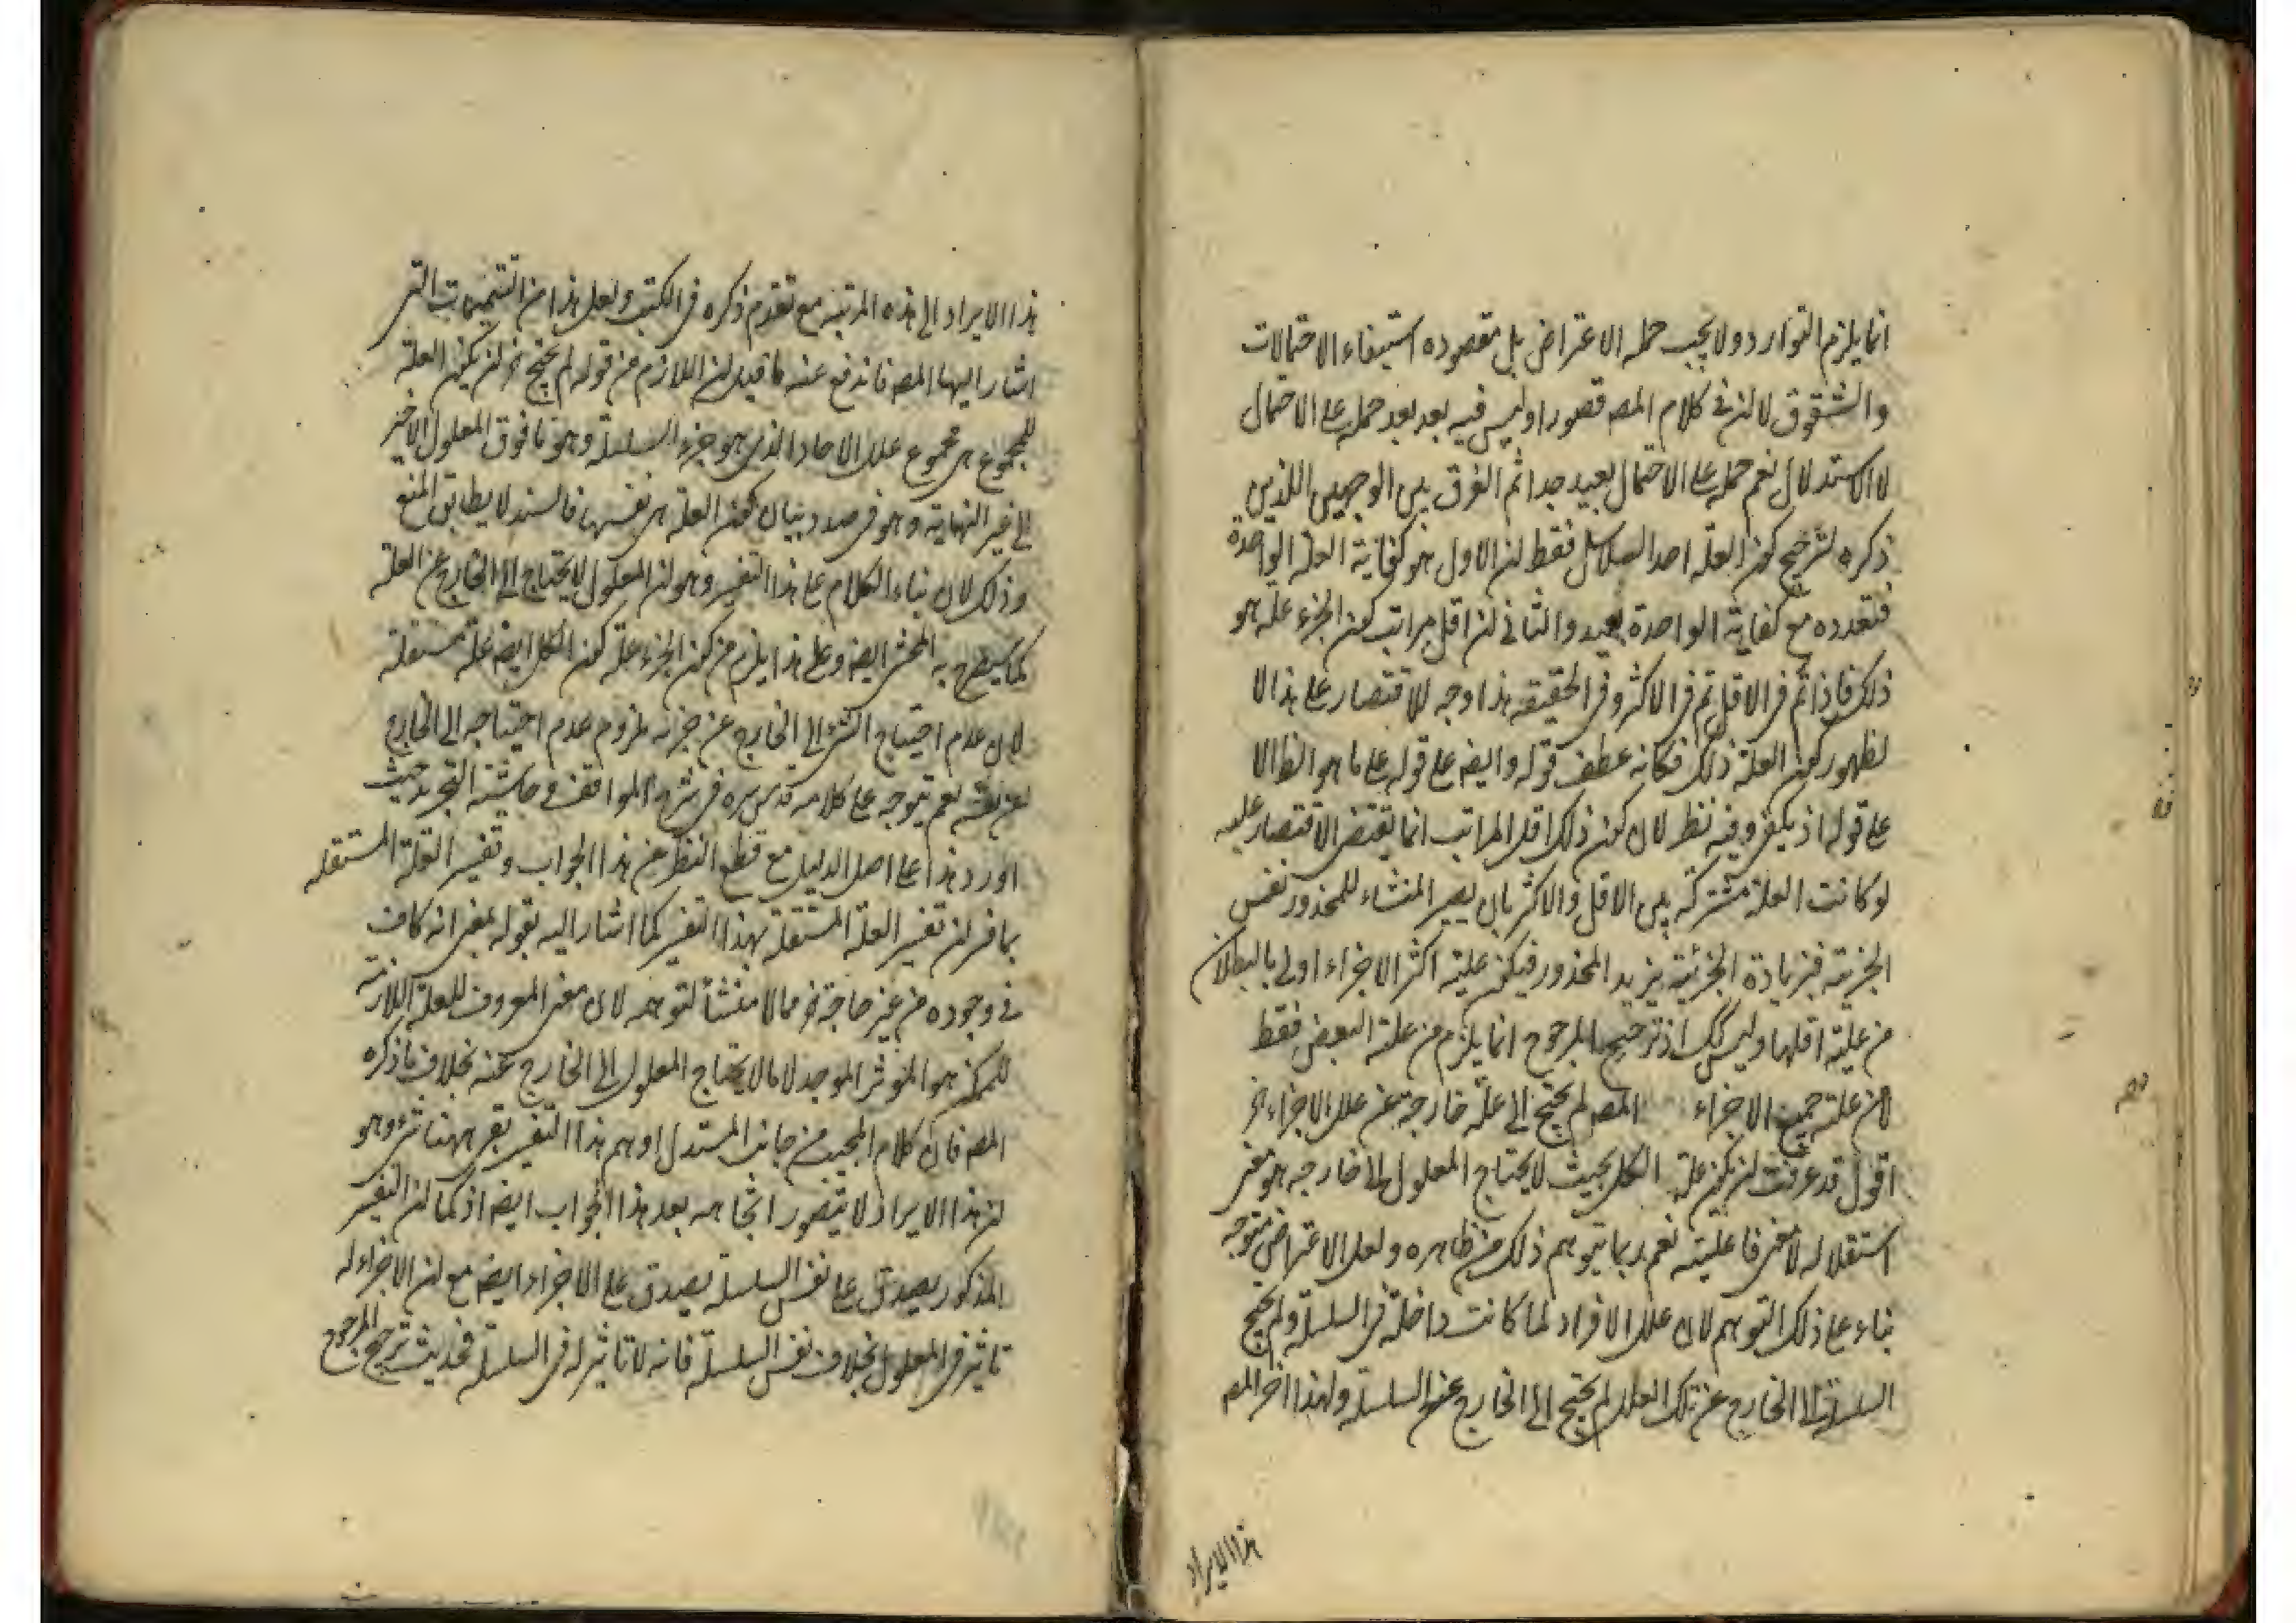 انما يلزم التوارد ولا يجب حمله الاعتراض بل مقصوده استيفاء الاحتمالات
والشقوق لا لن فى كلام المصه قصورا وليس فيه بعد بعد حمله على الاحتمال
لا الاستدلال نعم حمله على الاحتمال بعيد جدا ثم الفرق بين الوجهين اللذين
ذكره لترجيح كون العلة احد السلاسل فقط لن الاول هو كفاية العلة الواحدة
فتعدده مع كفاية الواحدة بعيد والثانى لن اقل مراتب كون الجزء علة هو
ذلك فاذا تم فى الاقل تم فى الاكثر وفى الحقيقة هذا وجه للاقتصار على هذا لا
لظهور كون العلة ذلك فكانه عطف قوله وايضه على قوله على ما هو الظ لا
على قوله اذ يكفى وفيه نظر لان كون ذلك اقل المراتب انما يقتضى الاقتصار عليه
لو كانت العلة مشتركة بين الاقل والاكثر بان يصير المنشاء للمحذور نفس
الجزئية فبزيادة الجزئية يزيد المحذور فيكون علية اكثر الاجزاء اولى بالبطلان
من علية اقلها وليس كك اذ ترجيح المرجوح انما يلزم من علية البعض فقط
لا من علية جميع الاجزاء المصه لم يحتج الى علة خارجة عن علل الاجزاء
اقول قد عرفت لن كون علة الكل بحيث لا يحتاج المعلول الى خارجه هو معنى
استقلاله لا معنى فاعليته نعم ربما يتوهم ذلك من ظاهره ولعل الاعتراض متوجه
بناء على ذلك التوهم لان علل الافراد لما كانت داخلة فى السلسلة ولم يحتج
السلسلة الى الخارج عن تلك العلل لم يحتج الى الخارج عن السلسلة ولهذا اخر المصه
هذا الايراد
هذا الايراد الى هذه المرتبة مع تقدم ذكره فى الكتب ولعل هذا من التتميمات التى
اشار اليها المصه فاندفع عنه ما قيل لن اللازم من قوله لم يحتج لن يكون العلة
للمجموع هى مجموع علل الاحاد الذى هو جزء السلسلة وهو ما فوق المعلول الاخير
الى غير النهاية وهو فى صدد بيان كون العلة هى نفسها فالسند لا يطابق المنع
وذلك لان بناء الكلام على هذا التفسير وهو لن المعلول لا يحتاج الى الخارج عن العلة
كما سيصرح به المحشى ايضه وعلى هذا يلزم من كون الجزء علة كون الكل ايضه علة مستقلة
لان عدم احتياج الشئ الى الخارج عن جزئه ملزوم عدم احتياجه الى الخارج
عن نفسه نعم يتوجه على كلامه قدس سره فى شرح المواقف وحاشية التجريد حيث
اورد هذا على اصل الدليل مع قطع النظر عن هذا الجواب وتفسير العلة المستقلة
بما فسر لن تفسير العلة المستقلة بهذا التفسير كما اشار اليه بقوله بمعنى انه كاف
فى وجوده من غير حاجة مما لا منشأ لتوهمه لان معنى المعروف للعلة اللازمة
للممكن هو المؤثر الموجد لا ما لا يحتاج المعلول الى الخارج عنه بخلاف ما ذكره
المصه فان كلام المجيب من جانب المستدل اوهم هذا التفسير بقى ههنا شئ وهو
لن هذا الايراد لا يتصور اتجاهه بعد هذا الجواب ايضه اذ كما لن التفسير
المذكور يصدق على نفس السلسلة يصدق على الاجزاء ايضه مع لن الاجزاء له
تاثير فى المعلول بخلاف نفس السلسلة فانه لا تاثير له فى السلسلة فحديث ترجيح المرجوح